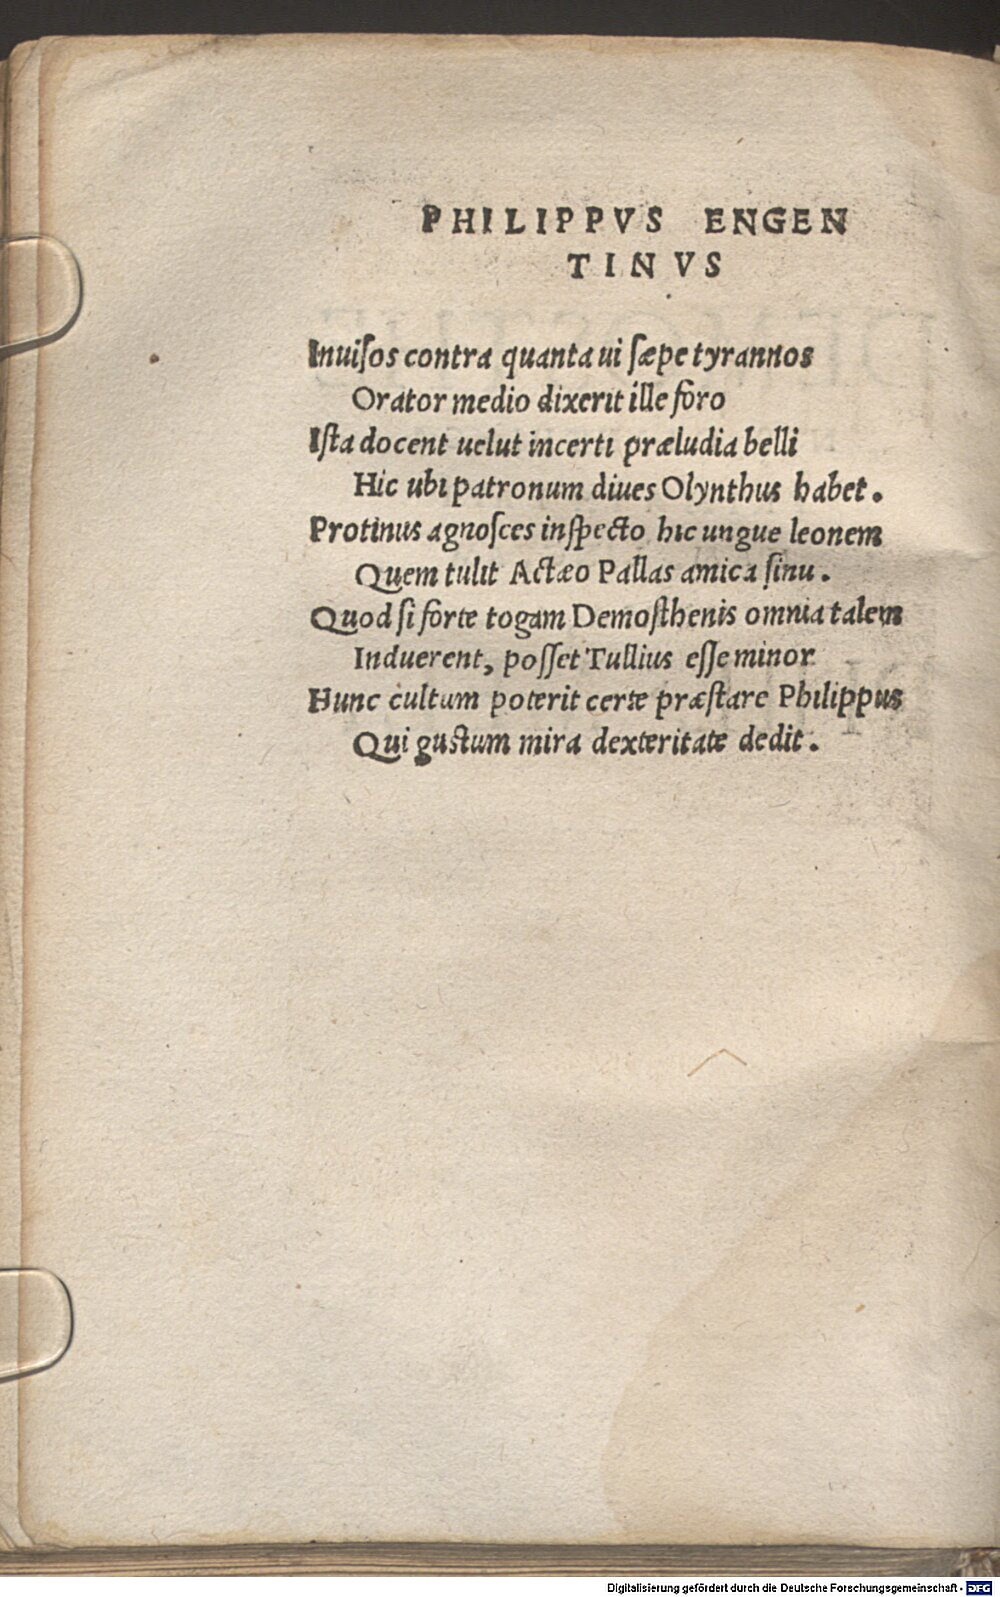 PHILIPPVS ENGEN
TINVS
Inuiſos contra quanta ui ſæpe tyrannos
Orator medio dixerit ille foro
Iſta docent uelut incerti præludia belli
Hic ubi patronum diues Olynthus habet.
Protinus agnoſces inſpecto hic ungue leonem
Quem tulit Actæo Pallas amica ſinu.
Quod ſi forte togam Demoſthenis omnia talem
Induerent, poſſet Tullius eſſe minor
Hunc cultum poterit certe præſtare Philippus
Qui guſtum mira dexteritate dedit.
Digitalisierung gefördert durch die Deutsche Forschungsgemeinschaft - DFG